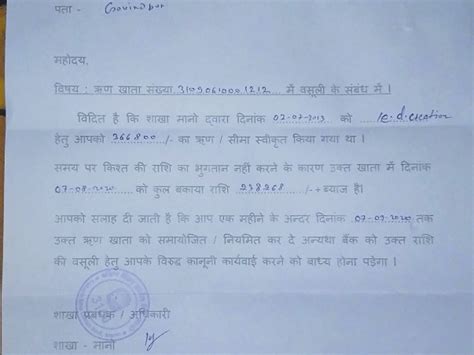 पता - Govindpur
महोदय,
विषय : ऋण खाता संख्या 31090610001212 में वसूली के संबंध में ।
विदित है कि शाखा मानो द्वारा दिनांक 02-07-2019 को
हेतु आपको 366.800 /- का ऋण / सीमा स्वीकृत किया गया था ।
समय पर किश्त की राशि का भुगतान नहीं करने के कारण उक्त खाता में दिनांक
07-08-2020 को कुल बकाया राशि 238268 /-+ब्याज है।
आपको सलाह दी जाती है कि आप एक महीने के अन्दर दिनांक 07-09-2020 तक
उक्त ऋण खाता को समायोजित / नियमित कर दे अन्यथा बैंक को उक्त राशि
की वसूली हेतु आपके विरुद्ध कानूनी कार्यवाई करने को बाध्य होना पड़ेगा ।
शाखा प्रबंधक / अधिकारी
शाखा - मानो